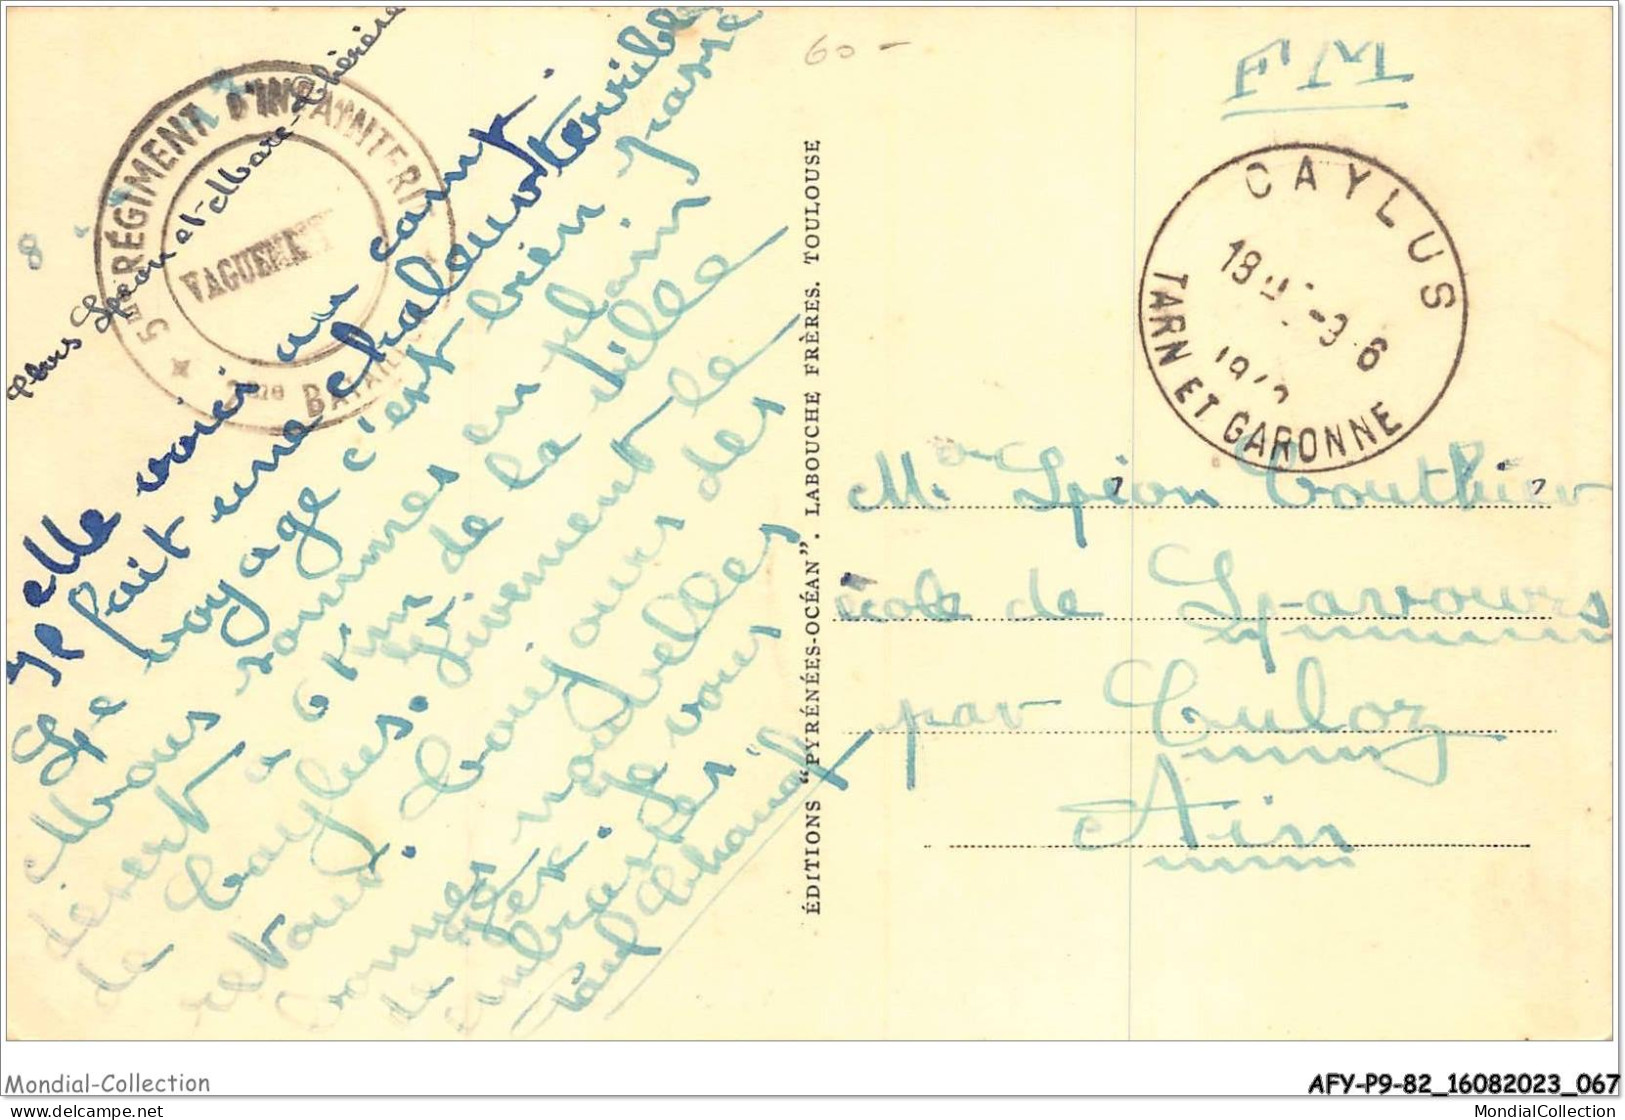 60 -
FM
Léon et Marc
5ME RÉGIMENT D'INFANTERIE
VAGUEMESTRE
BATAILLON
8
CAYLUS
18H -9-6
TARN ET GARONNE
elle voici au camp.
Il fait une chaleur terrible
Le voyage c'est bien passé
Nous sommes en plein
désert à 6 km de la ville
de Caylus. Vivement le
retour. Toujours des
bonnes nouvelles
de
embrasse
Paul
ÉDITIONS "PYRÉNÉES-OCÉAN". LABOUCHE FRÈRES. TOULOUSE
Mr Léon Couthier
école de Lavours
par Culoz
Ain
Mondial-Collection
AFY-P9-82_16082023_067
https://www.delcampe.net
MondialCollection